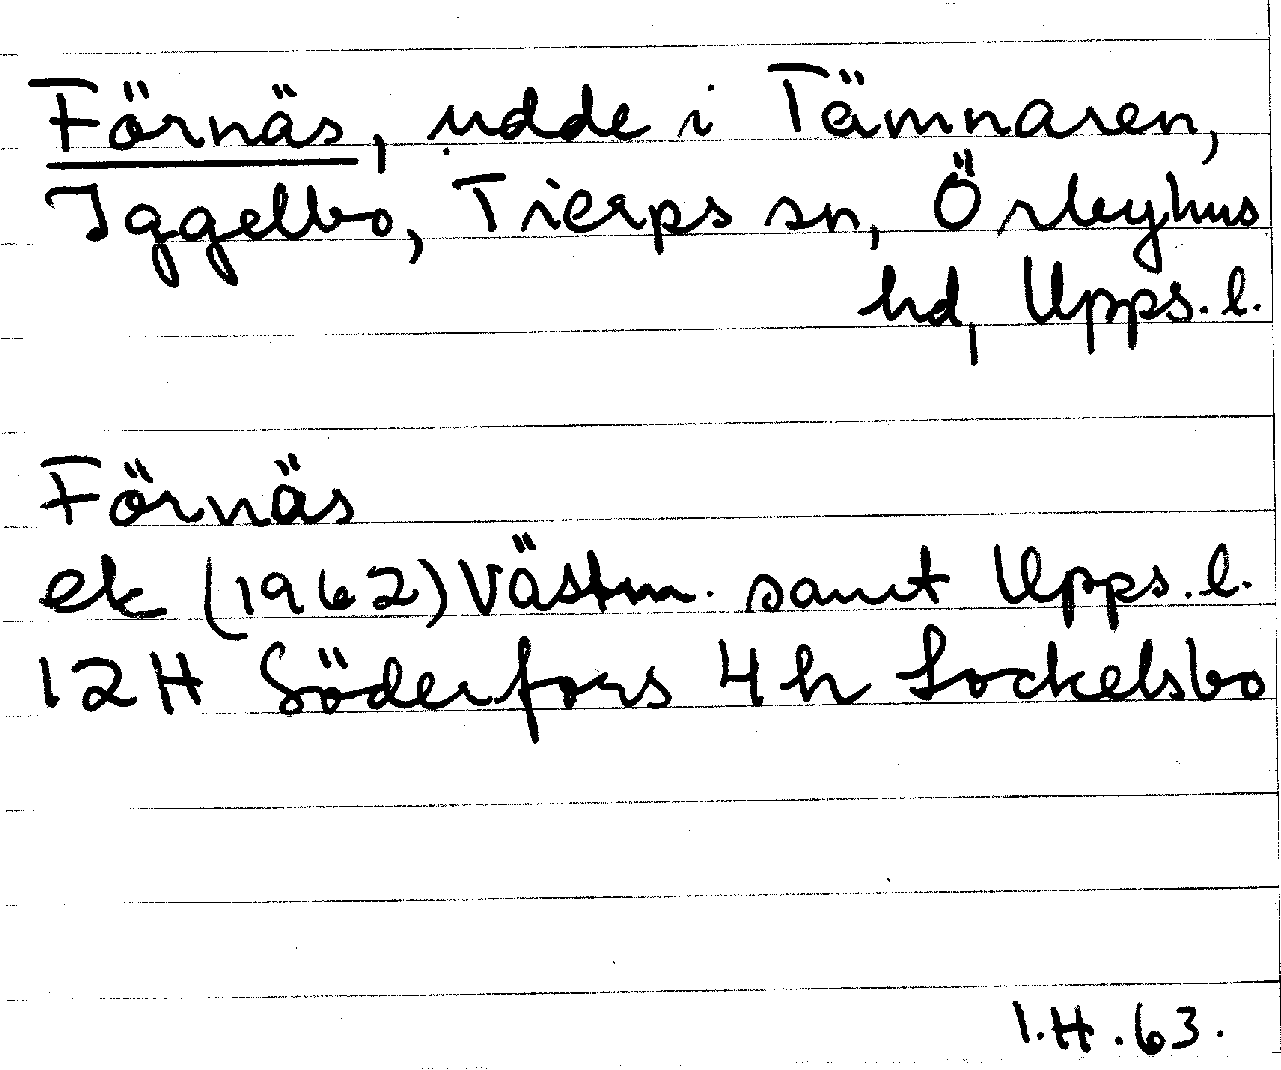 Förnäs, udde i Tämnaren,
Iggelbo, Tierps sn, Örbyhus
hd, Upps. l.
Förnäs
ek (1962) Västm. samt Upps. l.
12H Söderfors 4h Sockelsbo
I.H.63.